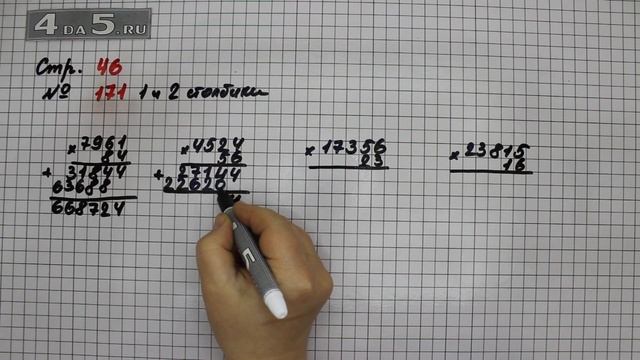 4ДА5.RU
Стр. 46
№ 171 1 и 2 столбики
×7961
84
+31844
63688
668724
×4524
56
+27144
22620
4
×17356
23
×23815
16